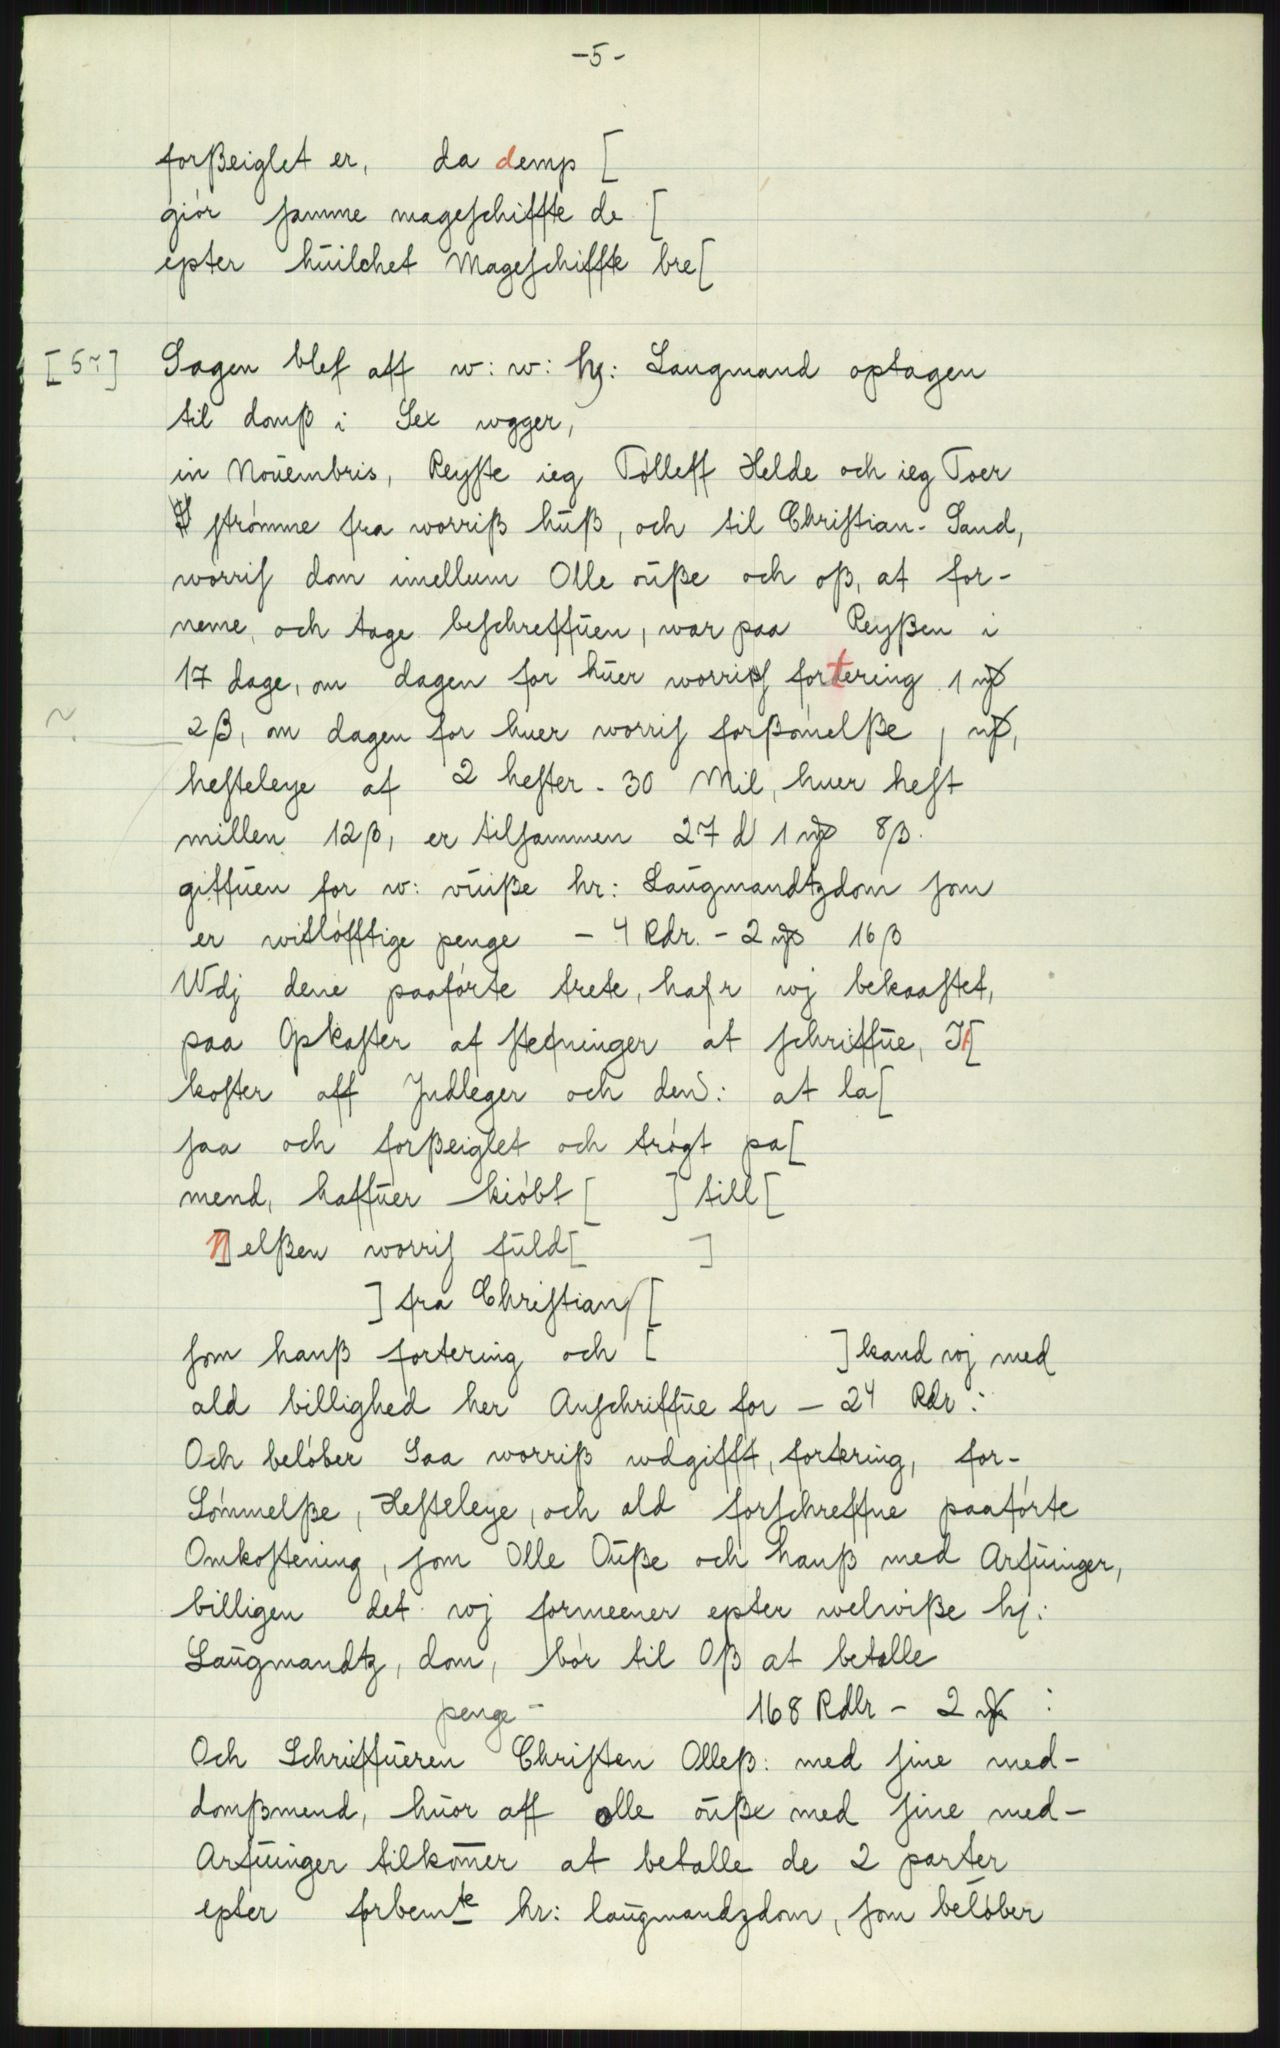 -5-
forßeiglet er, da demp [
giór samme mageschiffte de [
epter huilchet Mageschiffte bre[
[5r] Sagen blef aff w: w: hr: Laugmand optagen
til domß i Sex wgger,
in Nouembris, Reyste ieg Tolleff Helde och ieg Toer
strømme fra worriß huß, och til Christian-Sand,
worris dom imellum Olle ouße och oß, at for-
neme, och tage beschreffuen, war paa Reyßen i
17 dage, om dagen for huer worris fortering 1 mp
2 β, om dagen for huer worris forßómelße 1 mp,
hesteleye af 2 hester - 30 Mil, huer hest
millen 12 β, er tilsammen 27 d 1 mp 8 β.
giffuen for w: vuiße hr: Laugmandtzdom som
er witlófftige penge - 4 Rdr. - 2 mp 16 β
Wdj dene paafórte trete, hafr wj bekaastet,
paa Opkaster af stefninger at schriffue, It[
koster aff Indleger och den: at la[
saa och forßeiglet och trógt pa[
mend, haffuer kióbt [ ] till [
]elßen worris fuld[ ]
] fra Christian [
som hanß fortering och [ ] kand wj med
ald billighed her Anschriffue for - 24 Rdr:
Och belóber Saa worriß wdgifft, fortering, for-
Sómmelße, Hesteleye, och ald forschreffne paafórte
Omkostening, som Olle Ouße och hanß med Arfuinger,
billigen det wj formeener epter welwiße hr:
Laugmandtz, dom, bór til Oß at betalle
penge - 168 Rdlr - 2 mp :
Och Schriffueren Christen Olleß: med sine med-
domßmend, huor aff olle ouße med sine med-
Arfuinger tilkom̄er at betalle de 2 parter
epter forbemte hr: laugmandzdom, som belóber